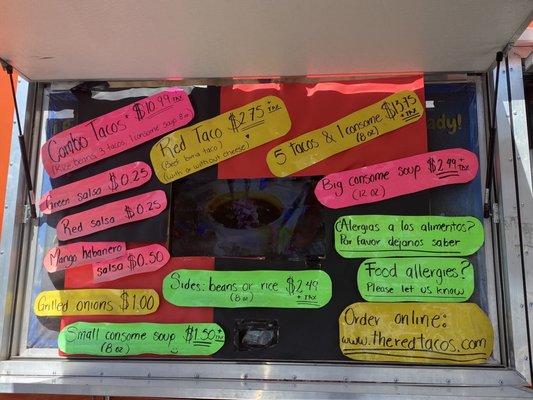 Combo Tacos* $10.99 + TAX
(Rice beans, 3 tacos, 1 consome soup 8oz)
Red Taco $2.75 + TAX
(Beef birria taco)
(with or without cheese)
5 tacos & 1 consome $13.75 + TAX
(8 oz)
Big consome soup $2.99 + TAX
(12 oz)
Green salsa $0.25
Red salsa $0.25
Mango habanero
salsa $0.50
Grilled onions $1.00
Small consome soup $1.50 + TAX
(8 oz)
Sides: beans or rice $2.49 + TAX
(8 oz)
¿Alergias a los alimentos?
Por favor dejanos saber
Food allergies?
Please let us know
Order online:
www.theredtacos.com
ady!